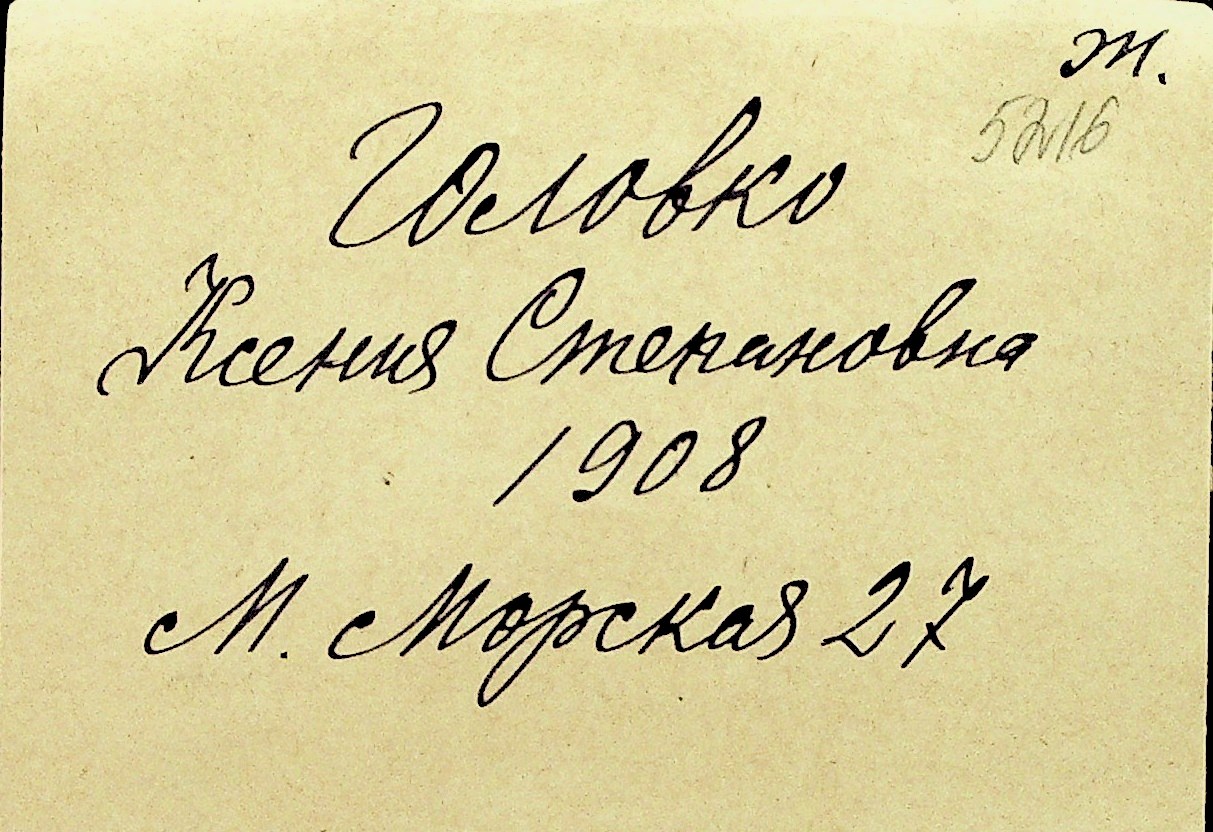 т.
5216
Головко
Ксения Степановна
1908
М. Морская 27